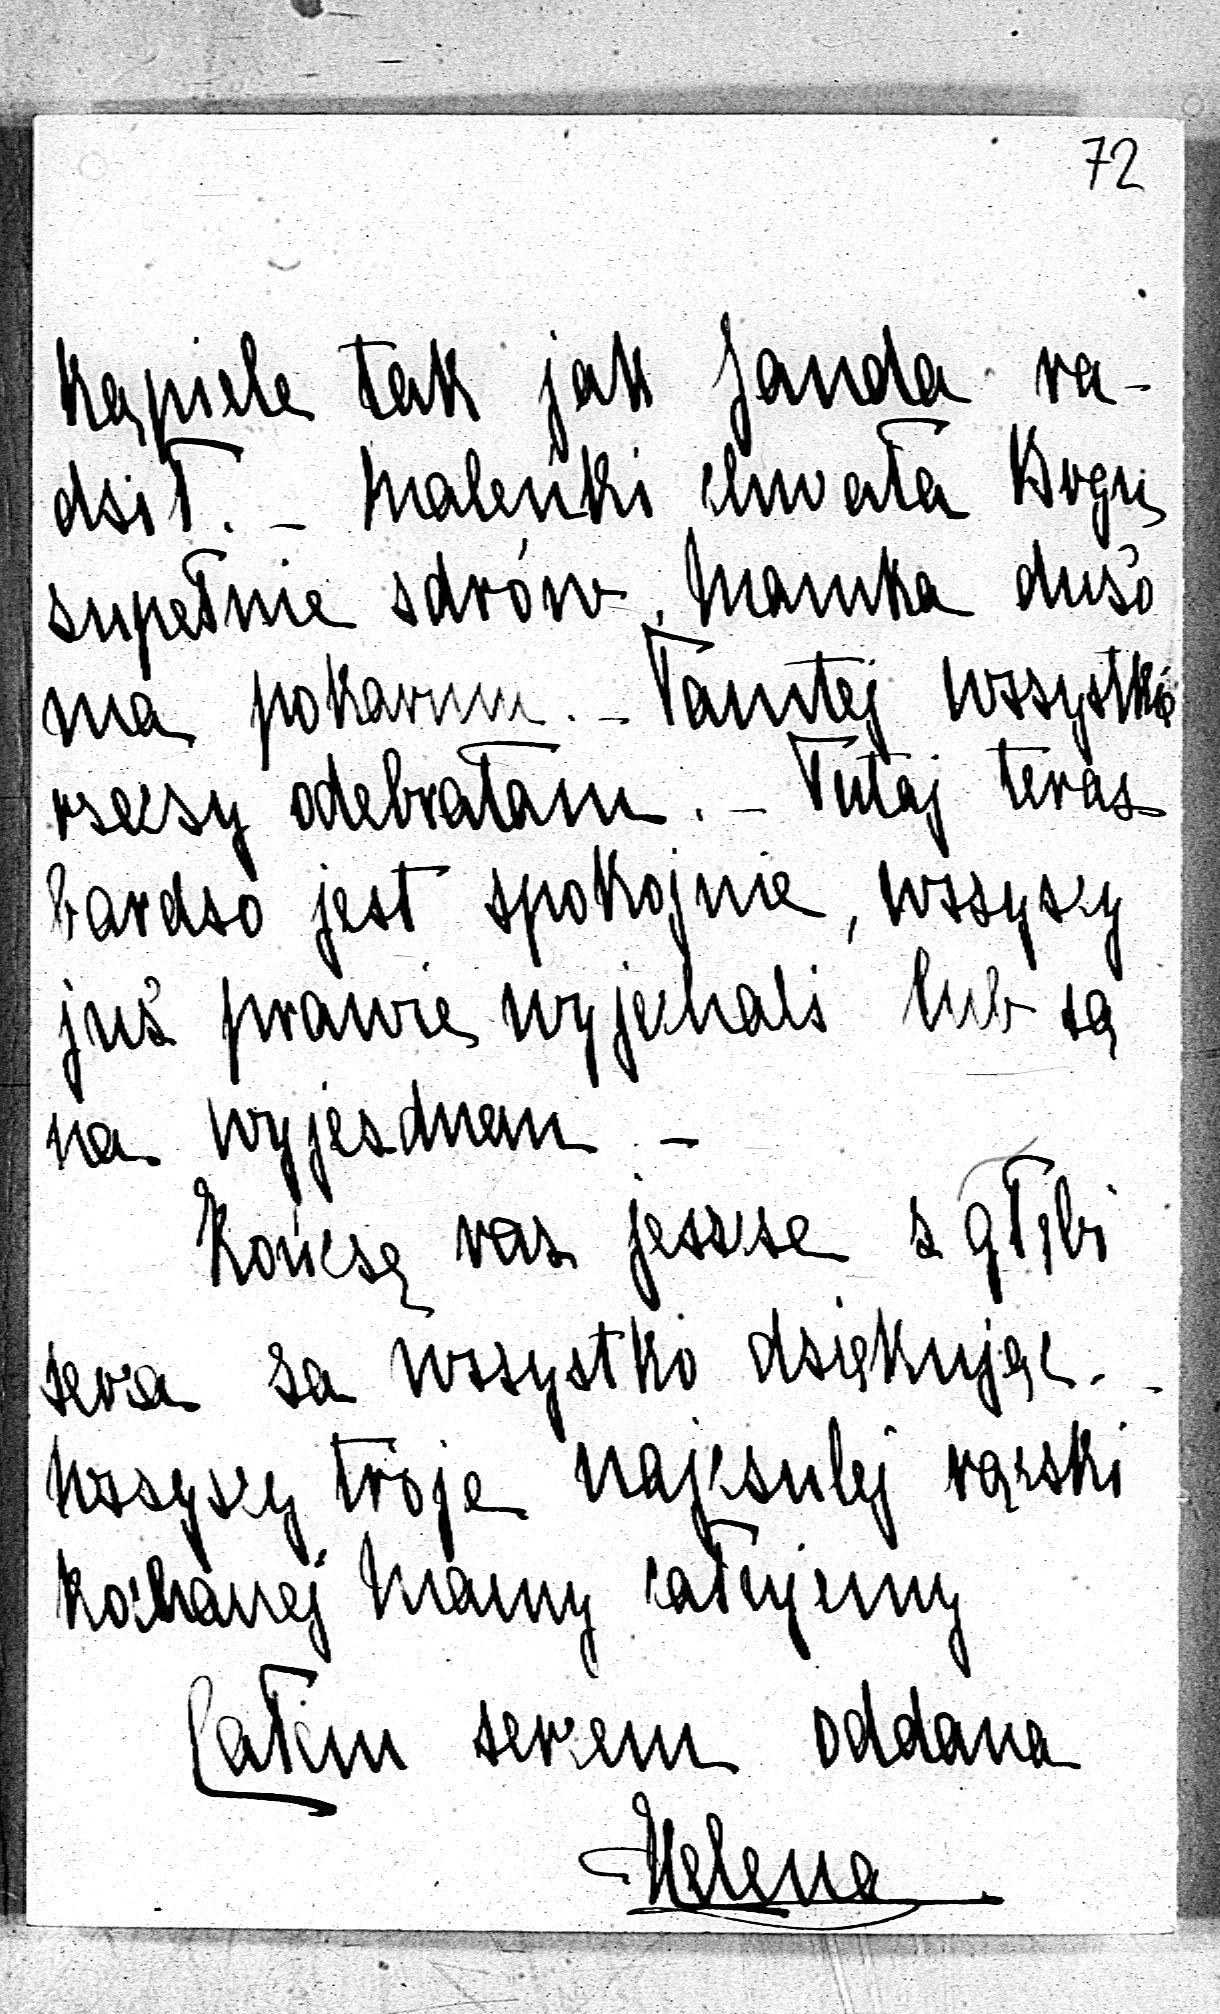 72
kąpiele tak jak Janda ra-
dził. – Maleńki chwała Bogu
zupełnie zdrów, Mamka dużo
ma pokarmu. – Tamtej wszystkie
rzeczy odebrałam. – Tutaj teraz
bardzo jest spokojnie, wszyscy
już prawie wyjechali lub są
na wyjezdnem –
Kończę raz jeszcze z głębi
serca za wszystko dziękując. –
Wszyscy troje najczulej rączki
kochanej Mamy całujemy
Całem sercem oddana
Helena